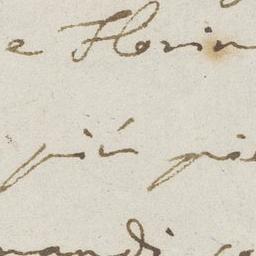 e Florin
più pia
mandi co